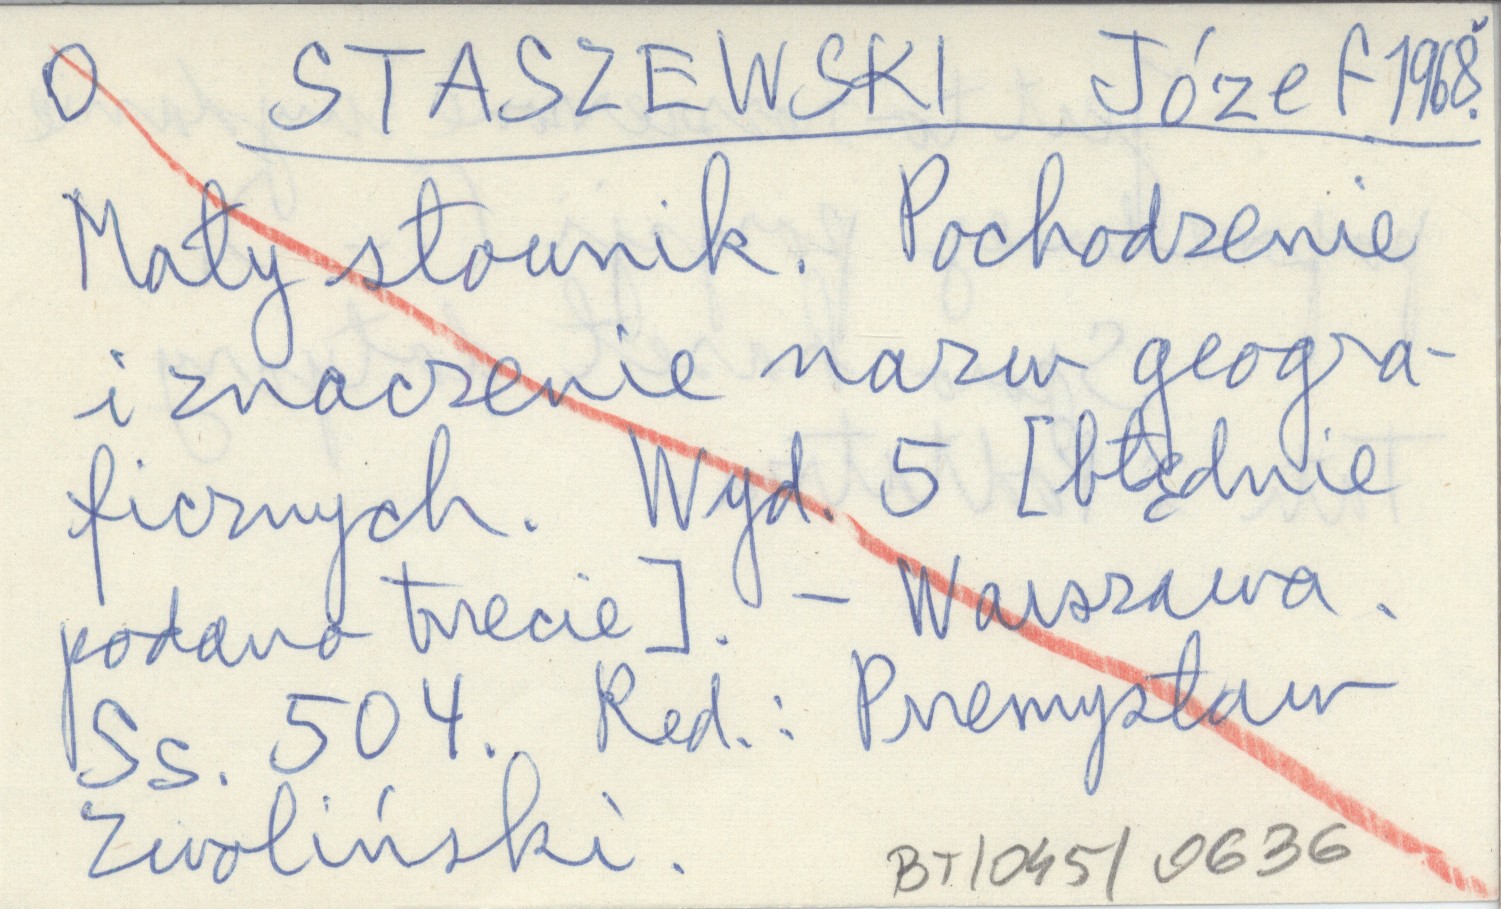 O STASZEWSKI Józef 1968.
Mały słownik. Pochodzenie
i znaczenie nazw geogra-
ficznych. Wyd. 5 [błędnie
podano trzecie]. – Warszawa.
Ss. 504. Red.: Przemysław
Zwoliński.
BT/045/0636